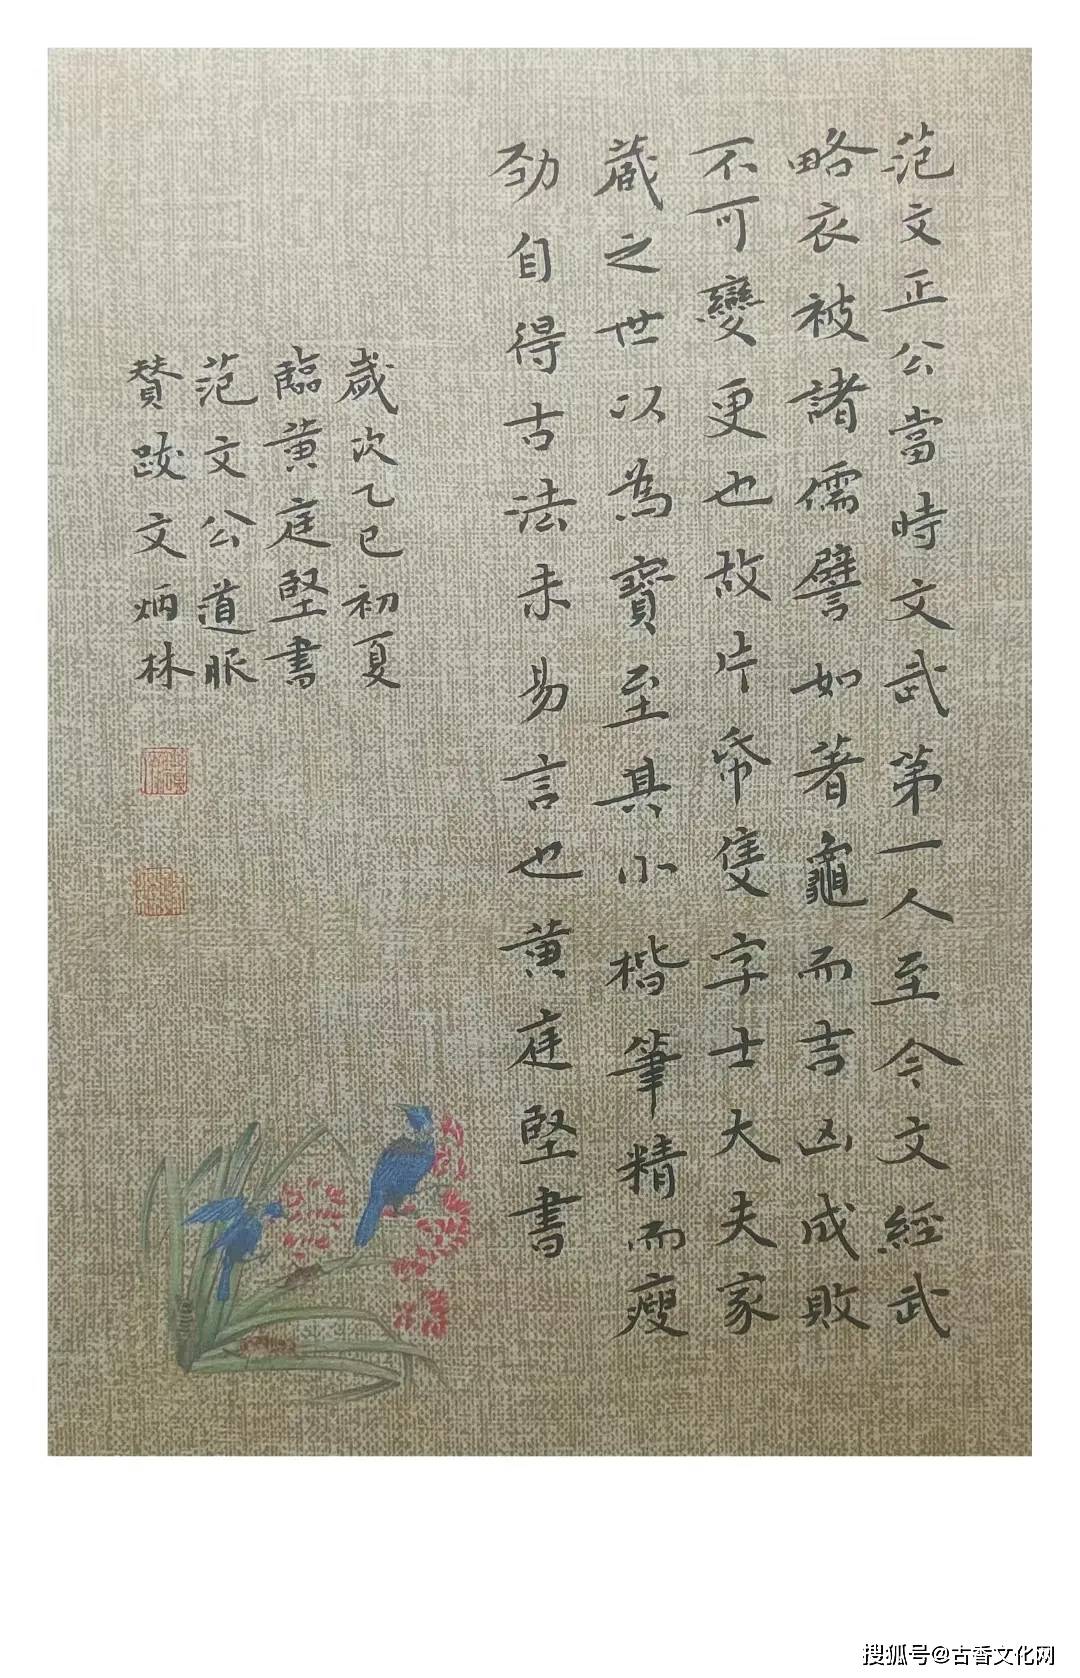 范文正公當時文武第一人至今文經武
略衣被諸儒譬如蓍龜而吉凶成敗
不可變更也故片帋隻字士大夫家
蔵之世以為寶至其小楷筆精而瘦
劲自得古法未易言也黄庭堅書
歲次乙巳初夏
臨黄庭堅書
范文公道服
賛跋文炳林
搜狐号@古香文化网